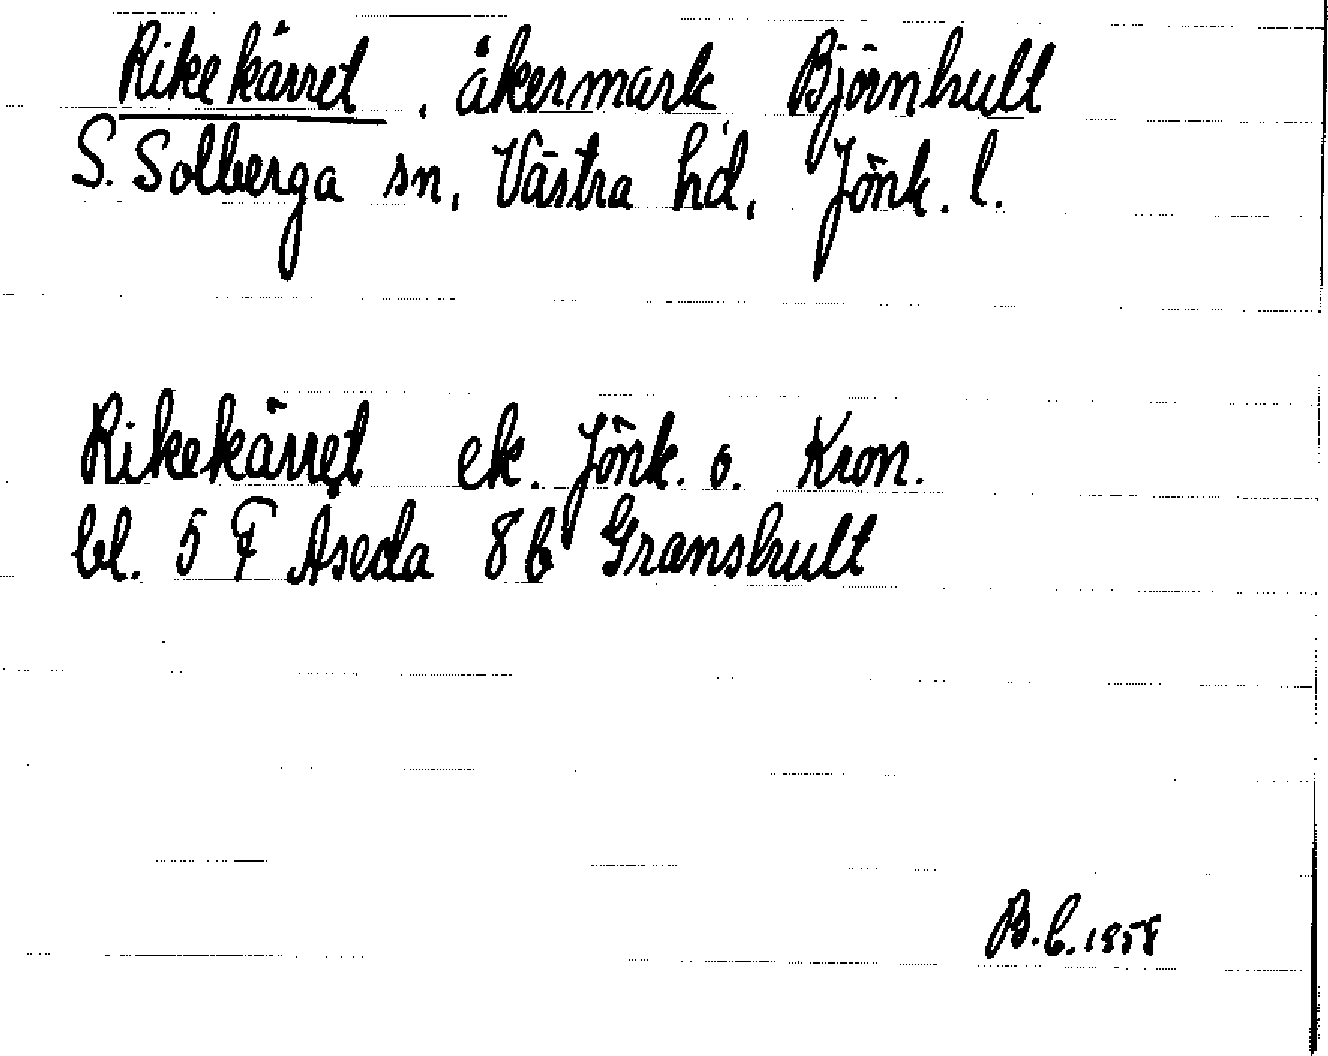 Rikekärret, åkermark Björnhult
S. Solberga sn, Västra hd, Jönk. l.
Rikekärret ek. Jönk. o. Kron.
bl. 5 F Åseda 8 b Granshult